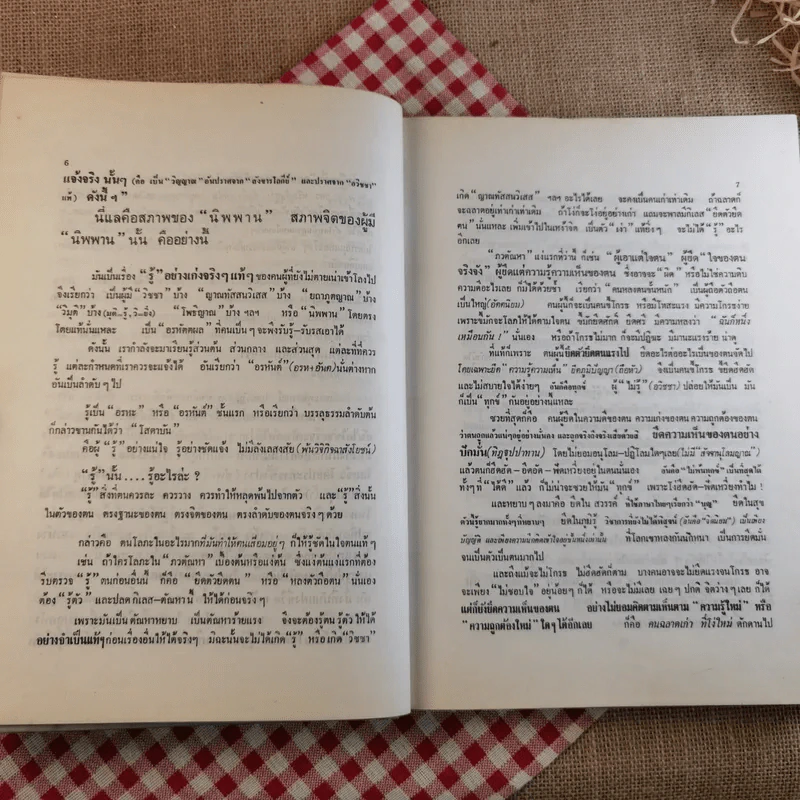 6
แจ้งจริง นั้นๆ (คือ เป็น “วิญญาณ” อันปราศจาก “สังขารโลกีย์” และปราศจาก “อวิชชา”
แท้) ดังนี้ ฯ”
นี่แลคือสภาพของ “นิพพาน” สภาพจิตของผู้มี
“นิพพาน” นั้น คืออย่างนี้
มันเป็นเรื่อง “รู้” อย่างเก่งจริงๆ แท้ๆ ของคนผู้ที่ยังไม่ตายเน่าเข้าโลงไป
จึงเรียกว่า เป็นผู้มี “วิชชา” บ้าง “ญาณทัสสนวิเสส” บ้าง “ยถาภูตญาณ” บ้าง
“วิมุติ” บ้าง (มุติ=รู้, วิ=ยิ่ง) “โพธิญาณ” บ้าง ฯลฯ หรือ “นิพพาน” โดยตรง
โดยแท้นั่นแหละ เป็น “อรหัตตผล” ที่คนเป็นๆ จะพึงรับรู้-รับรสเอาได้
ดังนั้น เรากำลังจะมาเรียนรู้ส่วนต้น ส่วนกลาง และส่วนสุด แต่ละที่ที่ควร
รู้ แต่ละกำหนดที่เราควรจะแจ้งได้ อันเรียกว่า “อรหันต์” (อรห+อันต) นั้นต่างหาก
อันเป็นลำดับๆ ไป
รู้เป็น “อรหะ” หรือ “อรหันต์” ชั้นแรก หรือเรียกว่า บรรลุธรรมลำดับต้น
ก็กล่าวขานกันได้ว่า “โสดาบัน”
คือผู้ “รู้” อย่างแน่ใจ รู้อย่างชัดแจ้ง ไม่มีลังเลสงสัย (พ้นวิจิกิจฉาสังโยชน์)
“รู้” นั้น . . . . รู้อะไรล่ะ ?
“รู้” สิ่งที่ตนควรละ ควรวาง ควรทำให้หลุดพ้นไปจากตัว และ “รู้” สิ่งนั้น
ในตัวของตน ตรงฐานะของตน ตรงจิตของตน ตรงลำดับของตนจริงๆ ด้วย
กล่าวคือ ตนโลภในอะไรมากที่มันทำให้ตนเสื่อมอยู่ๆ ก็ให้รู้ชัดในใจตนแท้ๆ
เช่น ถ้าใครโลภะใน “ภวตัณหา” เบื้องต้นหรือแง่ต้น ซึ่งแง่ต้นแง่แรกที่ต้อง
รีบตรวจ “รู้” ตนก่อนอื่นนี้ ก็คือ “ยึดตัวยึดตน” หรือ “หลงตัวถือตน” นั่นเอง
ต้อง “รู้ตัว” และปลดกิเลส-ตัณหานี้ ให้ได้ก่อนจริงๆ
เพราะมันเป็นตัณหาหยาบ เป็นตัณหาร้ายแรง จึงจะต้องรู้ตน รู้ตัว ให้ได้
อย่างจำเป็นแท้ๆ ก่อนเรื่องอื่นให้ได้จริงๆ มิฉะนั้นจะไม่ได้เกิด “รู้” หรือ เกิด “วิชชา”
7
เกิด “ญาณทัสสนวิเสส” ฯลฯ อะไรได้เลย จะคงเป็นคนเก่าเท่าเดิม ถ้าฉลาดก็
จะฉลาดอยู่เท่าเก่าเท่าเดิม ถ้าโง่ก็จะโง่อยู่อย่างเก่า แถมจะพาลมีกิเลส “ยึดตัวยึด
ตน” นั่นแหละ เพิ่มเข้าไปในเทราใจ๊ด เป็นตัว “เง่า” แท้ยิ่งๆ จะไม่ได้ “รู้” อะไร
อีกเลย
“ภวตัณหา” แง่แรกที่ว่านี้ ก็เช่น “ผู้เอาแต่ใจตน” ผู้ยึด “ใจของตน
จริงจัง” ผู้ยึดแต่ความรู้ความเห็นของตน ซึ่งอาจจะ “ผิด” หรือไม่ใช่ความดับ
ความคลายอะไรเลย ก็มีได้ด้วยซ้ำ เรียกว่า “คนหลงตนชั้นหนัก” เป็นผู้ถือตัวถือตน
เป็นใหญ่ (อัตตนิยม) คนผู้นี้ก็จะเป็นคนขี้โกรธ หรือมีโทสะแรง มีความโกรธง่าย
เพราะขี้มักจะโลภให้ได้ตามใจตน ขี้มักยึดศักดิ์ ยึดศรี มีความหลงว่า “ฉันก็หนึ่ง
เหมือนกัน !” นั่นเอง หรือถ้าโกรธไม่มาก ก็จะมีปฏิฆะ มีมานะแรงร้าย น่าดู
ที่แท้ก็เพราะ ตนผู้นี้ยึดตัวยึดตนแรงไป ยึดอะไรต่ออะไรเป็นของตนจัดไป
โดยเฉพาะยึด “ความรู้ความเห็น” ยึดภูมิปัญญา (ถือตัว) จึงเป็นคนขี้โกรธ ขี้อึดฮึดฮัด
และไม่สบายใจได้ง่ายๆ อันคือทุกข์ ผู้ “ไม่รู้” (อวิชชา) ปล่อยให้มันเป็น มัน
ก็เป็น “ทุกข์” กันอยู่อย่างนี้แหละ
ซวยที่สุดก็คือ คนผู้ยึดในความดีของตน ความเก่งของตน ความถูกต้องของตน
ว่าตนถูกแล้วแน่ๆ อยู่อย่างมั่นคง และถูกจริงเก่งจริงเสียด้วยสิ ยึดความเห็นของตนอย่าง
ปักมั่น (ทิฏฐุปาทาน) โดยไม่ยอมอนุโลม-ปฏิโลมใดๆ เลย (ไม่มี “สัจจานุโลมญาณ”)
แล้วตนก็ฮึดฮัด-อึดอัด-ฟัดเหวี่ยงอยู่ในตนนั่นเอง อันคือ “ไม่พ้นทุกข์” เป็นที่สุดได้
ทั้งๆ ที่ “ได้ดี” แล้ว ก็ไม่น่าจะขวยให้มัน “ทุกข์” เพราะโง่ฮึดฮัด-ฟัดเหวี่ยงทำไม !
และหยาบๆ ลงมาคือ ยึดใน สวรรค์ ที่ใช้ภาษาไทยๆ เรียกว่า “บุญ” ยึดในสุข
ที่โลกเขาหลงกันนักหนา เป็นการยึดมั่น
จนเป็นตัวเป็นตนมากไป
และถึงแม้จะไม่โกรธ ไม่ฮึดฮัดก็ตาม บางคนอาจจะไม่ยึดแรงจนโกรธ อาจ
จะเพียง “ไม่ชอบใจ” อยู่น้อยๆ ก็ได้ หรือจะไม่มีเลย เฉยๆ ปกติ จิตว่างๆ เลย ก็ได้
แต่ก็ยังยึดความเห็นของตน อย่างไม่ยอมคิดตามเห็นตาม “ความรู้ใหม่” หรือ
“ความถูกต้องใหม่” ใดๆ ได้อีกเลย ก็คือ คนฉลาดเก่า ที่โง่ใหม่ ดักดานไป